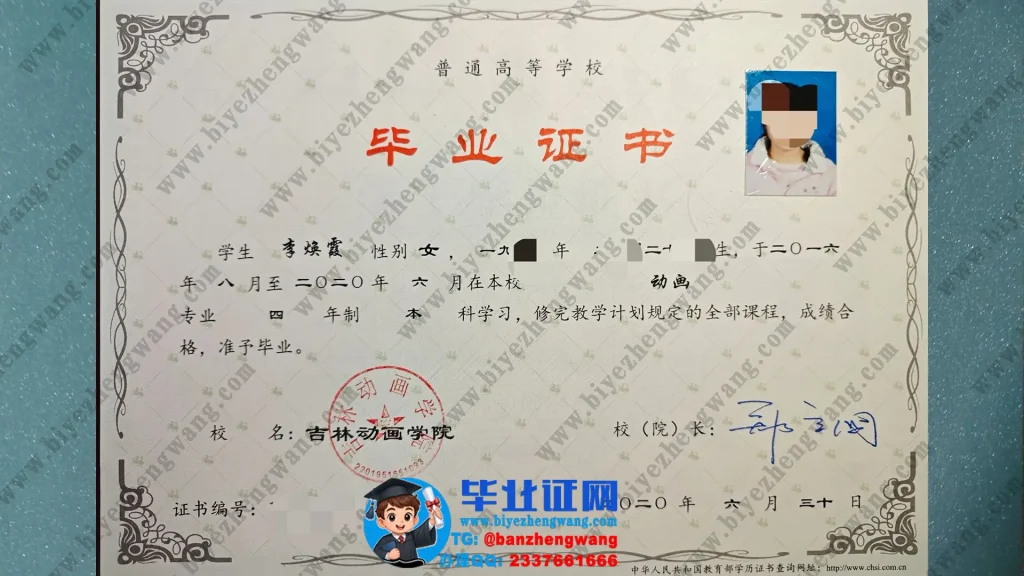 普通高等学校
毕业证书
学生 李焕霞 性别 女， 一九 年 二十 生，于二〇一六
年 八 月至 二〇二〇 年 六 月在本校 动画
专业 四 年制 本 科学习，修完教学计划规定的全部课程，成绩合
格，准予毕业。
吉林动画学院
2201951651093
校 名：吉林动画学院 校（院）长：
证书编号： 〇二〇 年 六 月 三十 日
毕业证网
www.biyezhengwang.com
TG: @banzhengwang
QQ: 2337661666
中华人民共和国教育部学历证书查询网址：http://www.chsi.com.cn
www.biyezhengwang.com